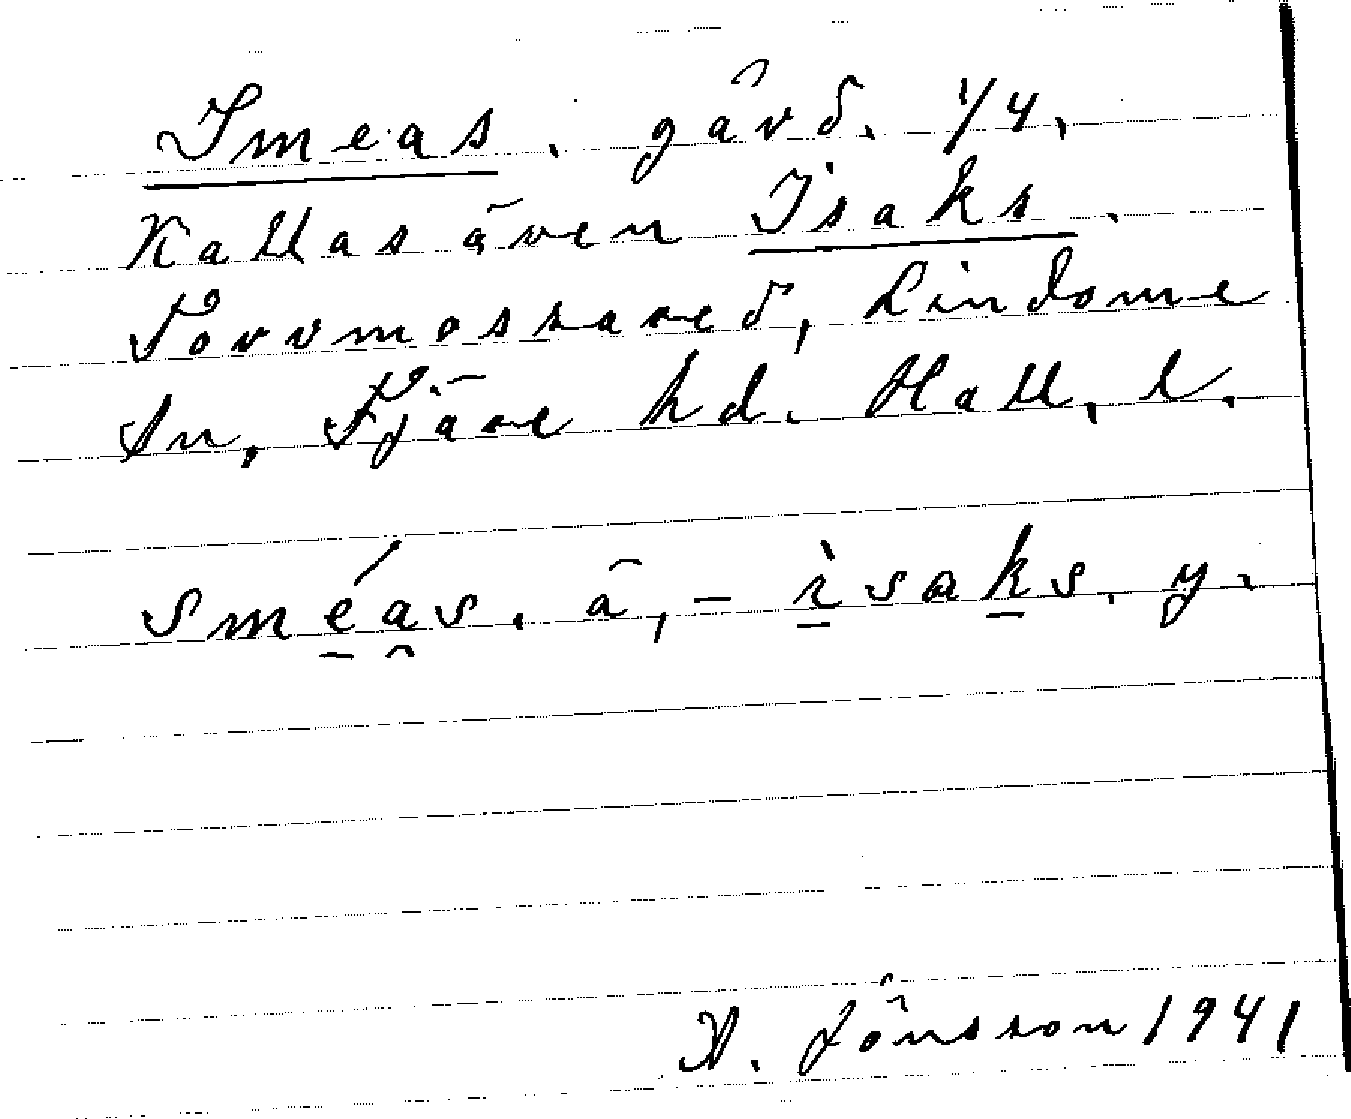 Smeas. gård. 1/4.
Kallas även Isaks.
Torvmossared, Lindome
sn, Fjäre hd. Hall. l.
sméas. ä, – ìsaks. y.
A. Jönsson 1941